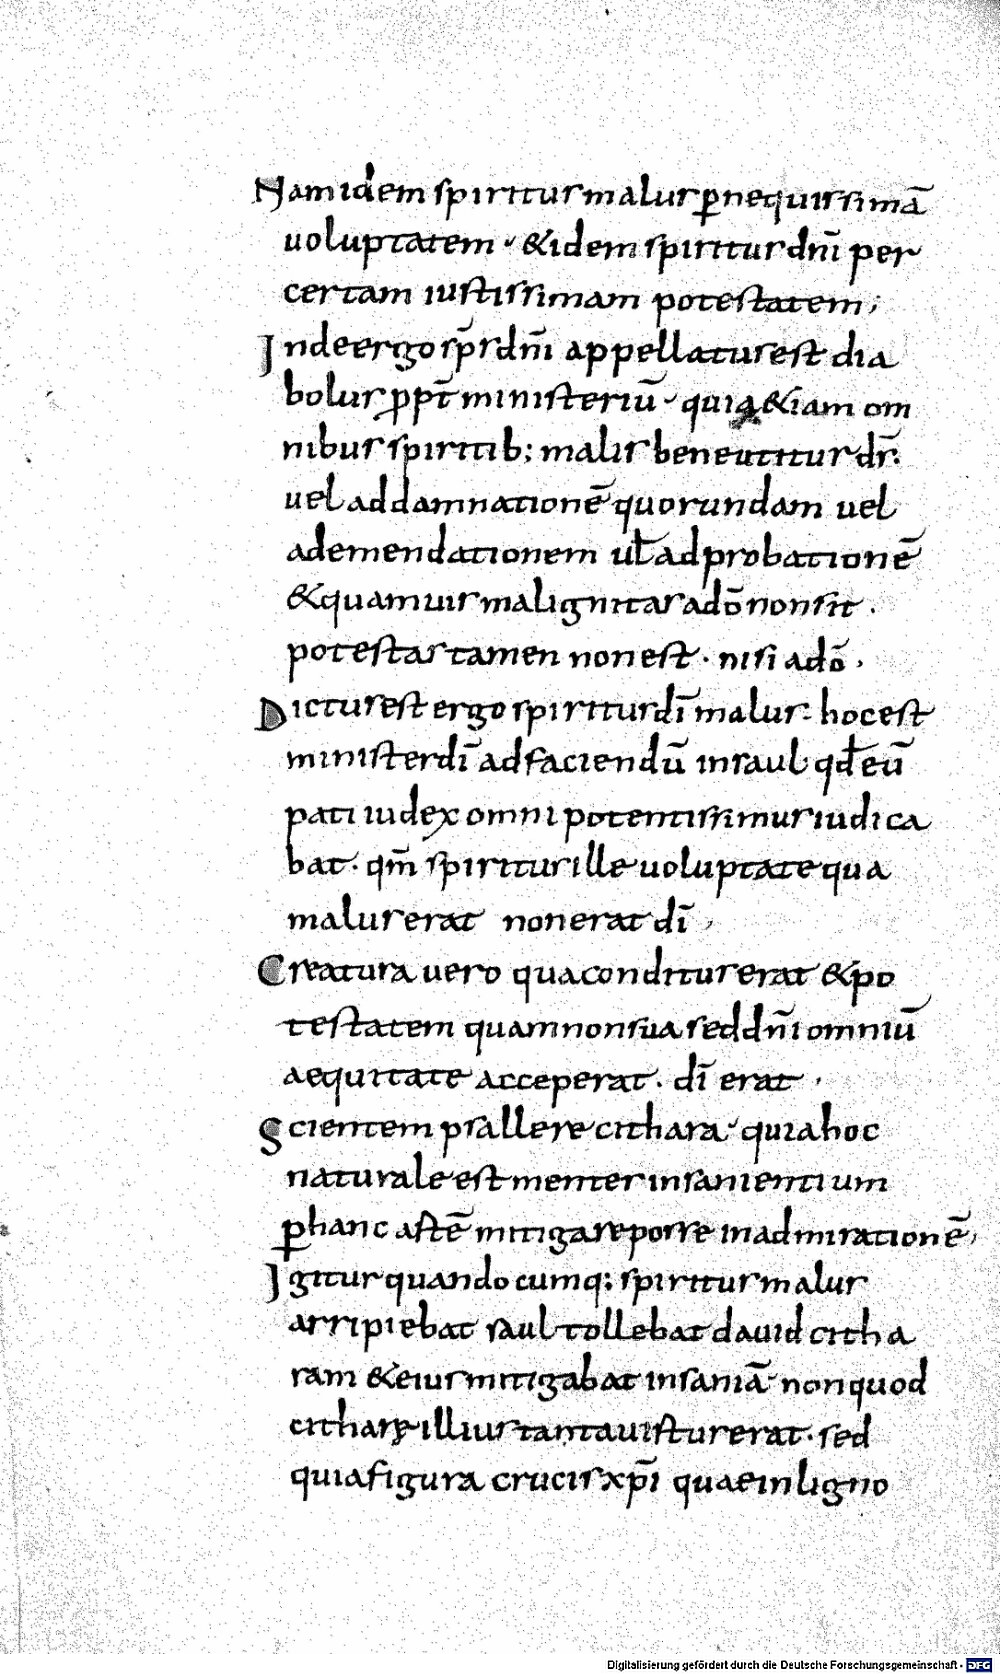 Nam idem spiritus malus p̱nequissimā
uoluptatem · & idem spiritus dn̄i per
certam iustissimam potestatem ;
Inde ergo sp̄s dn̄i appellatus est dia
bolus ꝓpt̄ ministeriū · quia &iam om
nibus spiritib; malis bene utitur dс̄.
uel ad damnationē quorundam uel
ad emendationem ul̄ ad probationē
& quamuis malignitas a dō non sit .
potestas tamen non est · nisi a dō .
Dictus est ergo spiritus dī malus · hoc est
minister dī ad faciendū in saul qd̄ eū
pati iudex omnipotentissimus iudica
bat · qm̄ spiritus ille uoluptate qua
malus erat non erat dī ,
Creatura uero qua conditus erat & po
testatem quam non sua sed dn̄i omniū
aequitate acceperat . dī erat .
Scientem psallere cithara · quia hoc
naturale est mentes insanientium
ꝑ hanc astē mitigare posse in admirationē,
Igitur quandocumq; spiritus malus
arripiebat saul tollebat dauid citha
ram & eius mitigabat insaniā · non quod
citharę illius tanta uistus erat · sed
quia figura crucis xp̄i quae in ligno
Digitalisierung gefördert durch die Deutsche Forschungsgemeinschaft - DFG